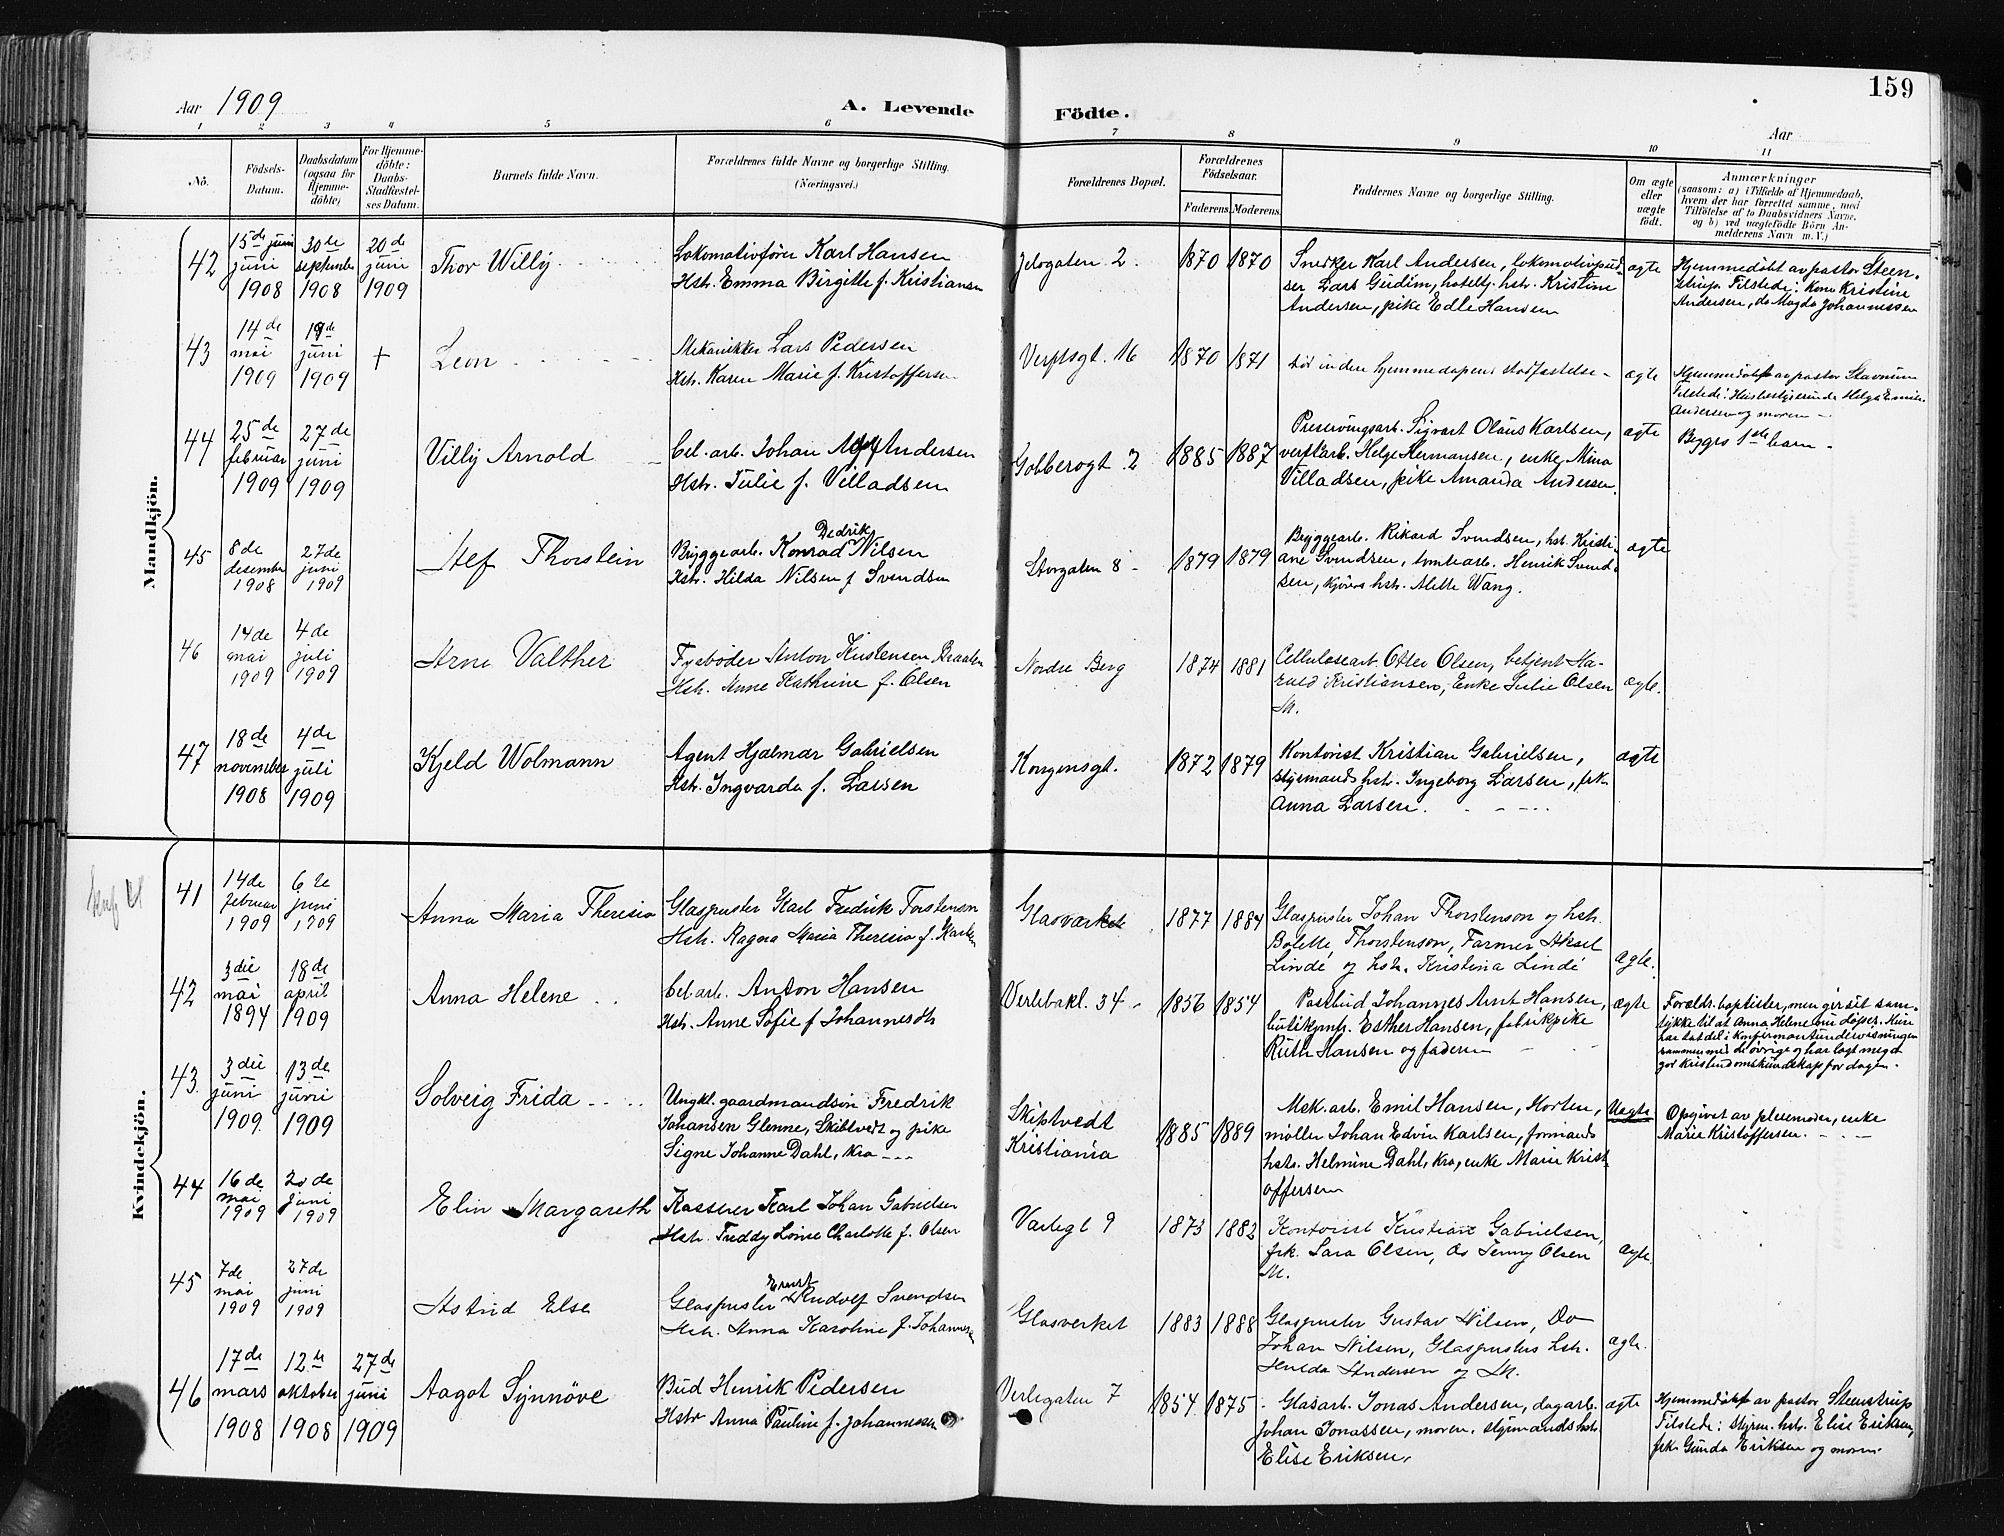 159
Aar 1909
A. Levende
Födte.
Aar
1 2 3 4 5 6 7 8 9 10 11
No.
Födsels-Datum.
Daabsdatum (ogsaa for Hjemme-döbte)
For Hjemme-döbte: Daabs-Stadfæstel-ses Datum.
Barnets fulde Navn.
Forældrenes fulde Navne og borgerlige Stilling.
(Næringsvei.)
Forældrenes Bopæl.
Forældrenes Födselsaar.
Faderens. Moderens.
Faddernes Navne og borgerlige Stilling.
Om ægte eller uægte födt.
Anmærkninger
(saasom: a) i Tilfælde af Hjemmedaab,
hvem der har forrettet samme, med
Tilföielse af to Daabsvidners Navne,
og b) ved uægtefödte Börn An-
melderens Navn m. V.)
Mandkjön.
42
15de juni
juni
1908
30te
september
1908
20de
juni
1909
Thor Willy
Lokomotivfører Karl Hansen
Hstr. Emma Birgitte f. Kristiansen
Jeløgaten 2.
1870 1870
Snekker Karl Andersen, lokomotivpud-
ser Lars Geidim, hoteltj. hstr. Kristine
Andersen, pike Edle Hansen
ægte
Hjemmedøbt av pastor Steen-
strup. Tilstede: Kone Kristine
Andersen, do Magda Johannessen
43
14de
mai
1909
19de
juni
1909
+
Leon
Mekanikker Lars Pedersen
Hstr. Karen Marie f. Kristoffersen
Verftsgt. 16
1870 1871
død inden hjemmedaapens stadfæstelse -
ægte
Hjemmedøbt av pastor Stavnum
Tilstede: Husbestyrerinde Helga Emilie
Andersen og moren -
44
25de
februar
1909
27de
juni
1909
Villy Arnold
Cel. arb. Johan Alf Andersen
Hstr. Julie f. Villadsen
Gobberogt. 2
1885 1887
Preservingsarb. Sigvart Olaus Karlsen,
verftarb. Helge Hermansen, enke Mina
Villadsen, pike Amanda Andersen.
ægte
Bygrs 1ste barn -
45
8de
desember
1908
27de
juni
1909
Alf Thorstein
Dedrik
Bryggearb. Konrad Nilsen
Hstr. Hilda Nilsen f Svendsen
Storgaten 8 -
1879 1879
Bryggearb. Rikard Svendsen, hst. Kristi-
ane Svendsen, tomtearb. Henrik Svend-
sen, kjørers hstr. Alette Wang.
ægte
46
14de
mai
1909
4de
juli
1909
Arne Valther
Fyrbøder Anton Kristensen Braaten
Hstr. Anne Kathrine f. Olsen
Nordre Berg
1874 1881
Cellulosearb Otter Olsen, betjent Ha-
rald Kristiansen, Enke Julie Olsen
M.
ægte.
47
18de
november
1908
4de
juli
1909
Kjeld Wolmann
Agent Hjalmar Gabrielsen
Hstr. Ingvarda f. Larsen
Kongensgt.
1872 1879
Kontorist Kristian Gabrielsen,
styrmands hstr. Ingeborg Larsen, frk.
Anna Larsen.
ægte
Kvindekjön.
41
14de
februar
1909
6te
juni
1909
Anna Maria Theresia
Glaspuster Karl Fredrik Torstenson
Hstr. Ragna Maria Theresia f. Karlsen
Glasværket
1877 1884
Glaspuster Johan Thorstenson og hstr.
Bolette Thorstenson, Farmer Aksel
Lindé og hstr. Kristina Lindé
ægte.
42
3die
mai
1894
18de
april
1909
Anna Helene
Cel. arb. Anton Hansen
Hstr. Anne Sofie f Johannesdtr
Verlebakl. 34 -
1856 1854
Postbud Johannes Arnt Hansen,
butikjmfr. Esther Hansen, fabrikpike
Ruth Hansen og faderen
ægte
Forældr. baptister, men gir sit sam-
tykke til at Anna Helene nu døpes. Hun
har tat del i konfirmantundervisningen
sammen med de øvrige og har lagt meget
god kristendomskundskap for dagen.
43.
3die
juni
1909.
13de
juni
1909
Solveig Frida
Ungkl. gaardmandssøn Fredrik
Johansen Glenne, Skibtvedt og pike
Signe Johanne Dahl, Kra
Skiptvedt
Kristiania
1885 1889
Mek. arb. Emil Hansen, Horten,
møller Johan Edvin Karlsen, formands
hstr. Helmine Dahl, Kra, enke Marie Krist-
offersen
Uægte
Opgivet av pleiemoder, enke
Marie Kristoffersen.
44
16de
mai
1909
20de
juni
1909
Elin Margareth
Kasserer Karl Johan Gabrielsen
Hstr. Freddy Lovise Charlotte f. Olsen
Varlegt 9
1873 1882
Kontorist Kristian Gabrielsen,
frk. Sara Olsen, do Jenny Olsen
M.
ægte
45
7de
mai
1909
27de
juni
1909
Astrid Else
Ernst
Glaspuster Rudolf Svendsen
Hstr. Anna Karoline f. Johannesen
Glasverket
1883 1888
Glaspuster Gustav Nilsen, Do
Johan Nilsen, Glaspusters hstr.
Hulda Andersen og M.
ægte.
46
17de
mars
1908
12te
oktober
1908
27de
juni
1909
Aagot Synnöve
Bud Henrik Pedersen
Hstr Anna Pauline f. Johannessen
Verlegaten 7
1854 1875
Glasarb. Jonas Andersen, dagarb.
Johan Jonassen, moren, styrmands hstr.
Elise Eriksen.
ægte
Hjemmedøbt av pastor Steenstrup
Tilstede: Styrm. hstr. Elise Eriksen,
frk. Gunda Eriksen og moren